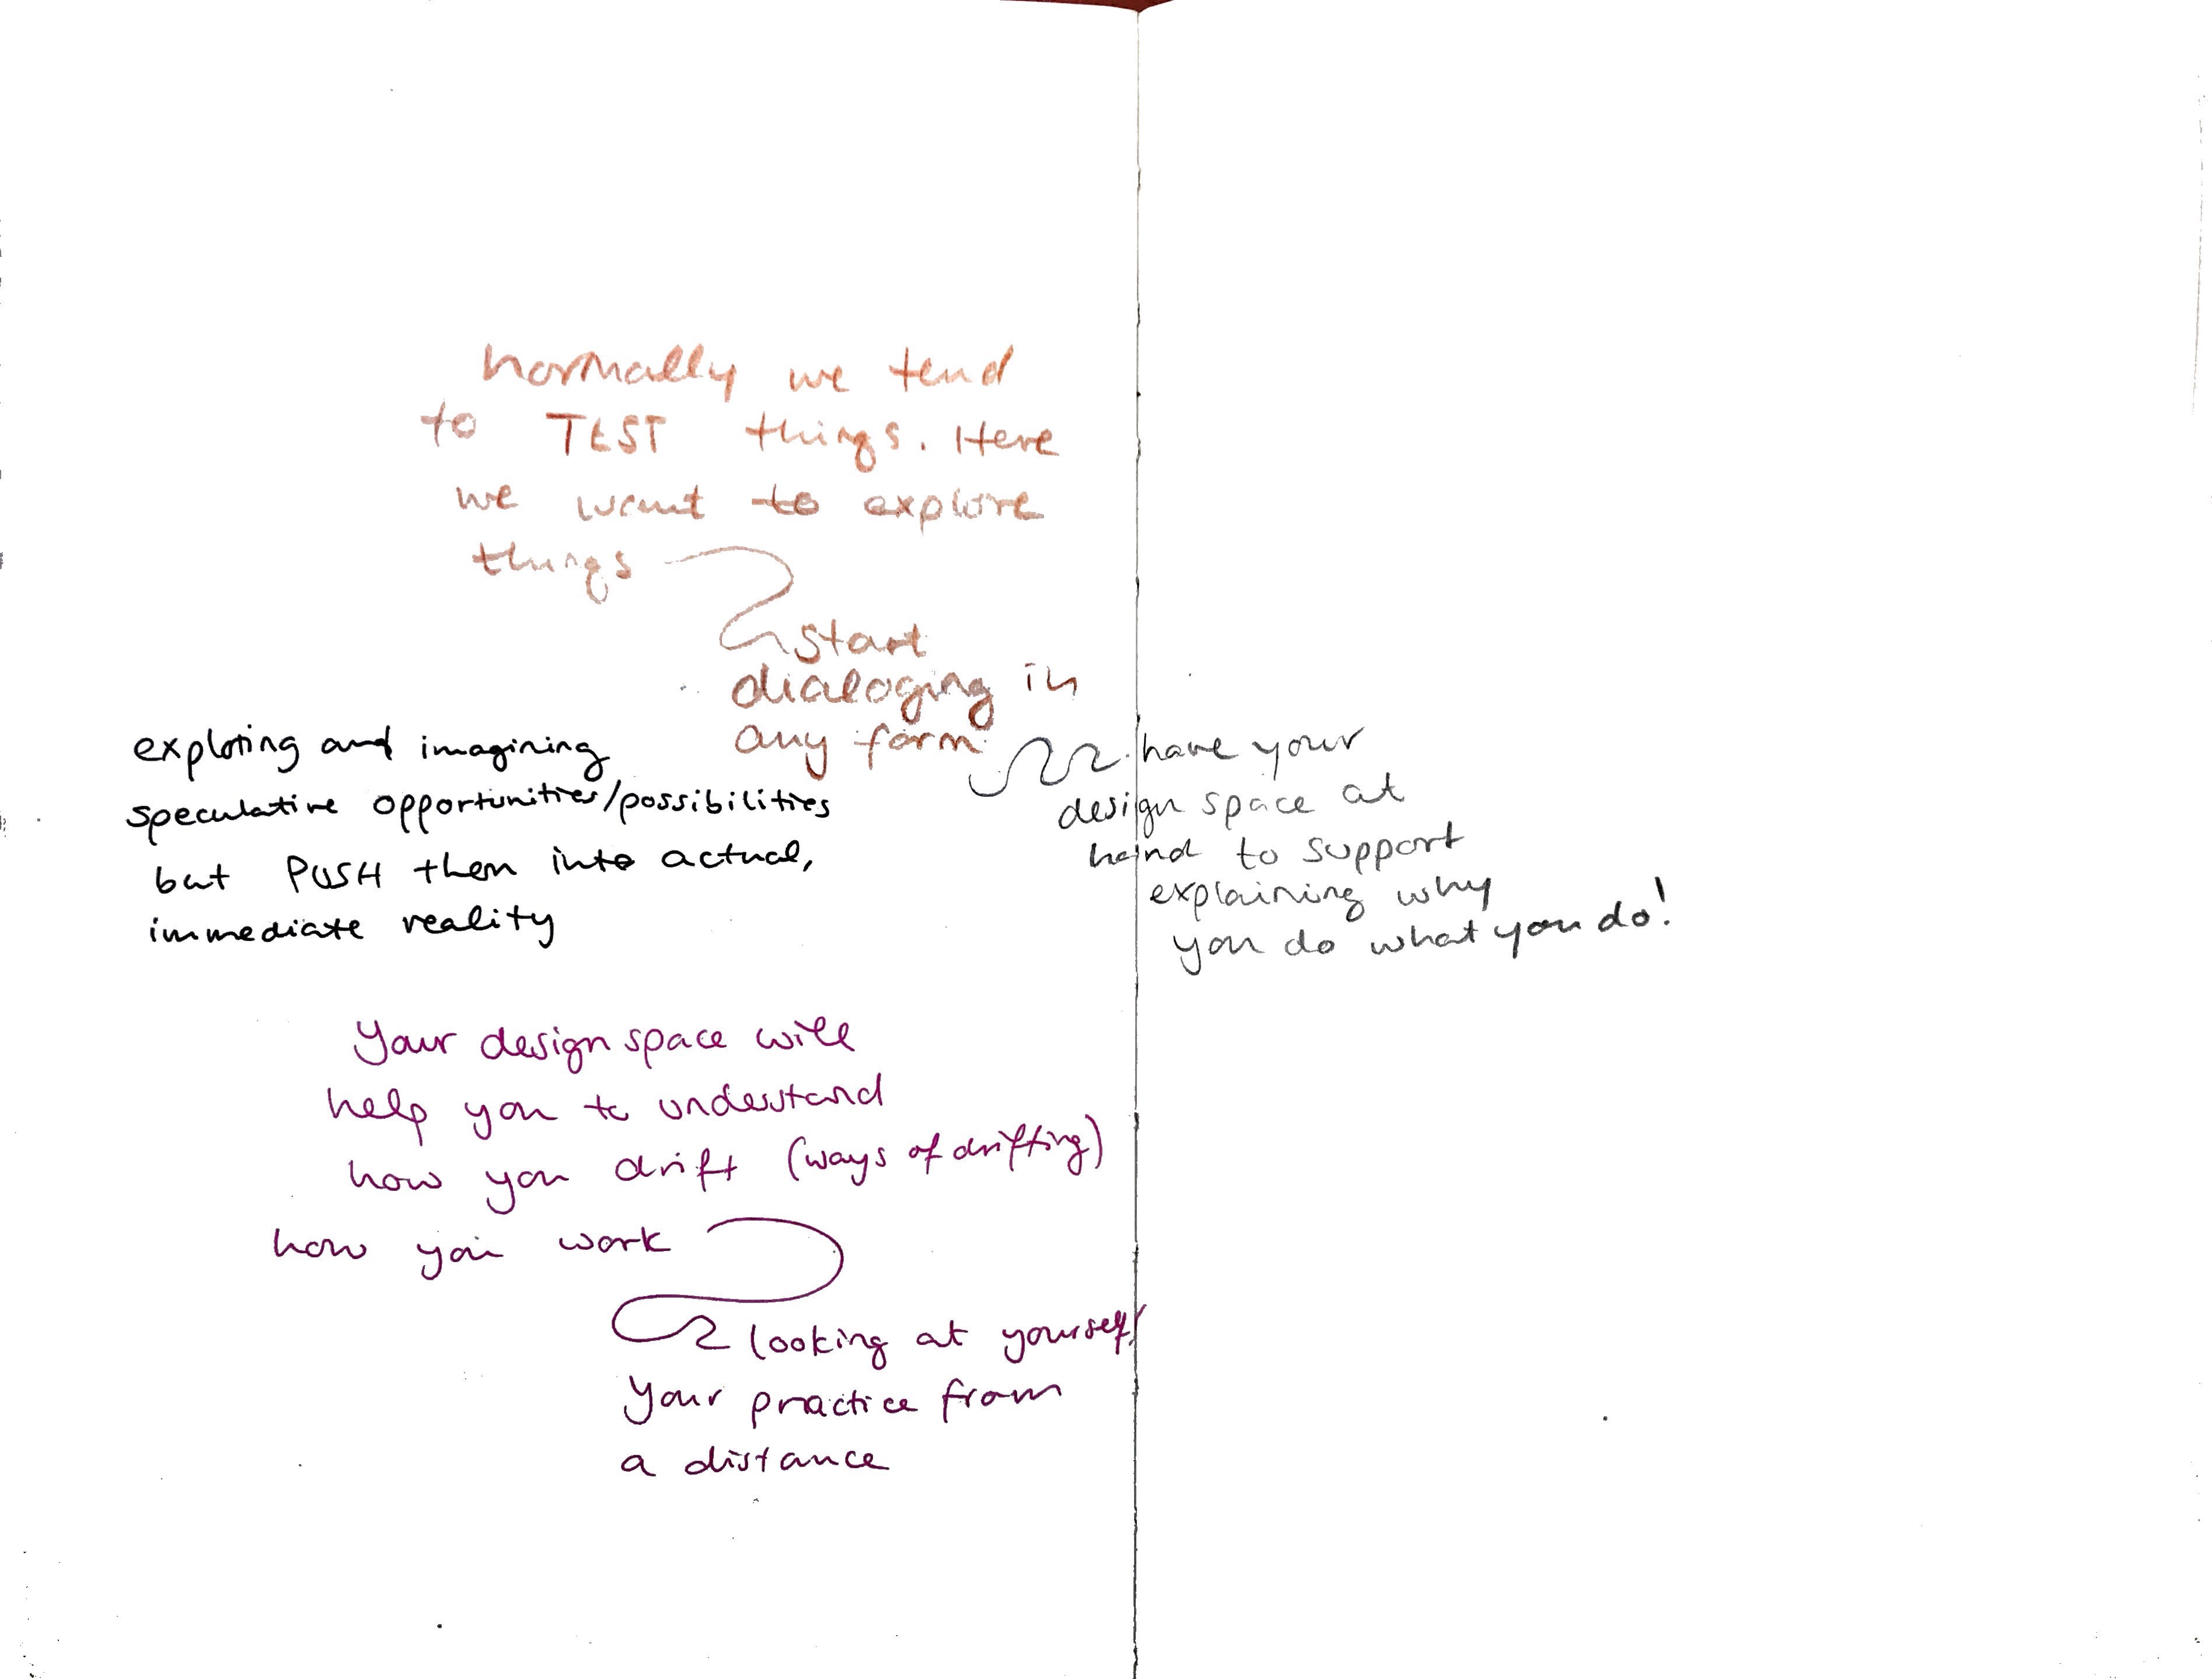 normally we tend
to TEST things. Here
we want to explore
things
start
dialoging in
any form
have your
design space at
hand to support
explaining why
you do what you do!
exploring and imagining
speculative opportunities/possibilities
but PUSH them into actual,
immediate reality
Your design space will
help you to understand
how you drift (ways of drifting)
how you work
looking at yourself/
your practice from
a distance